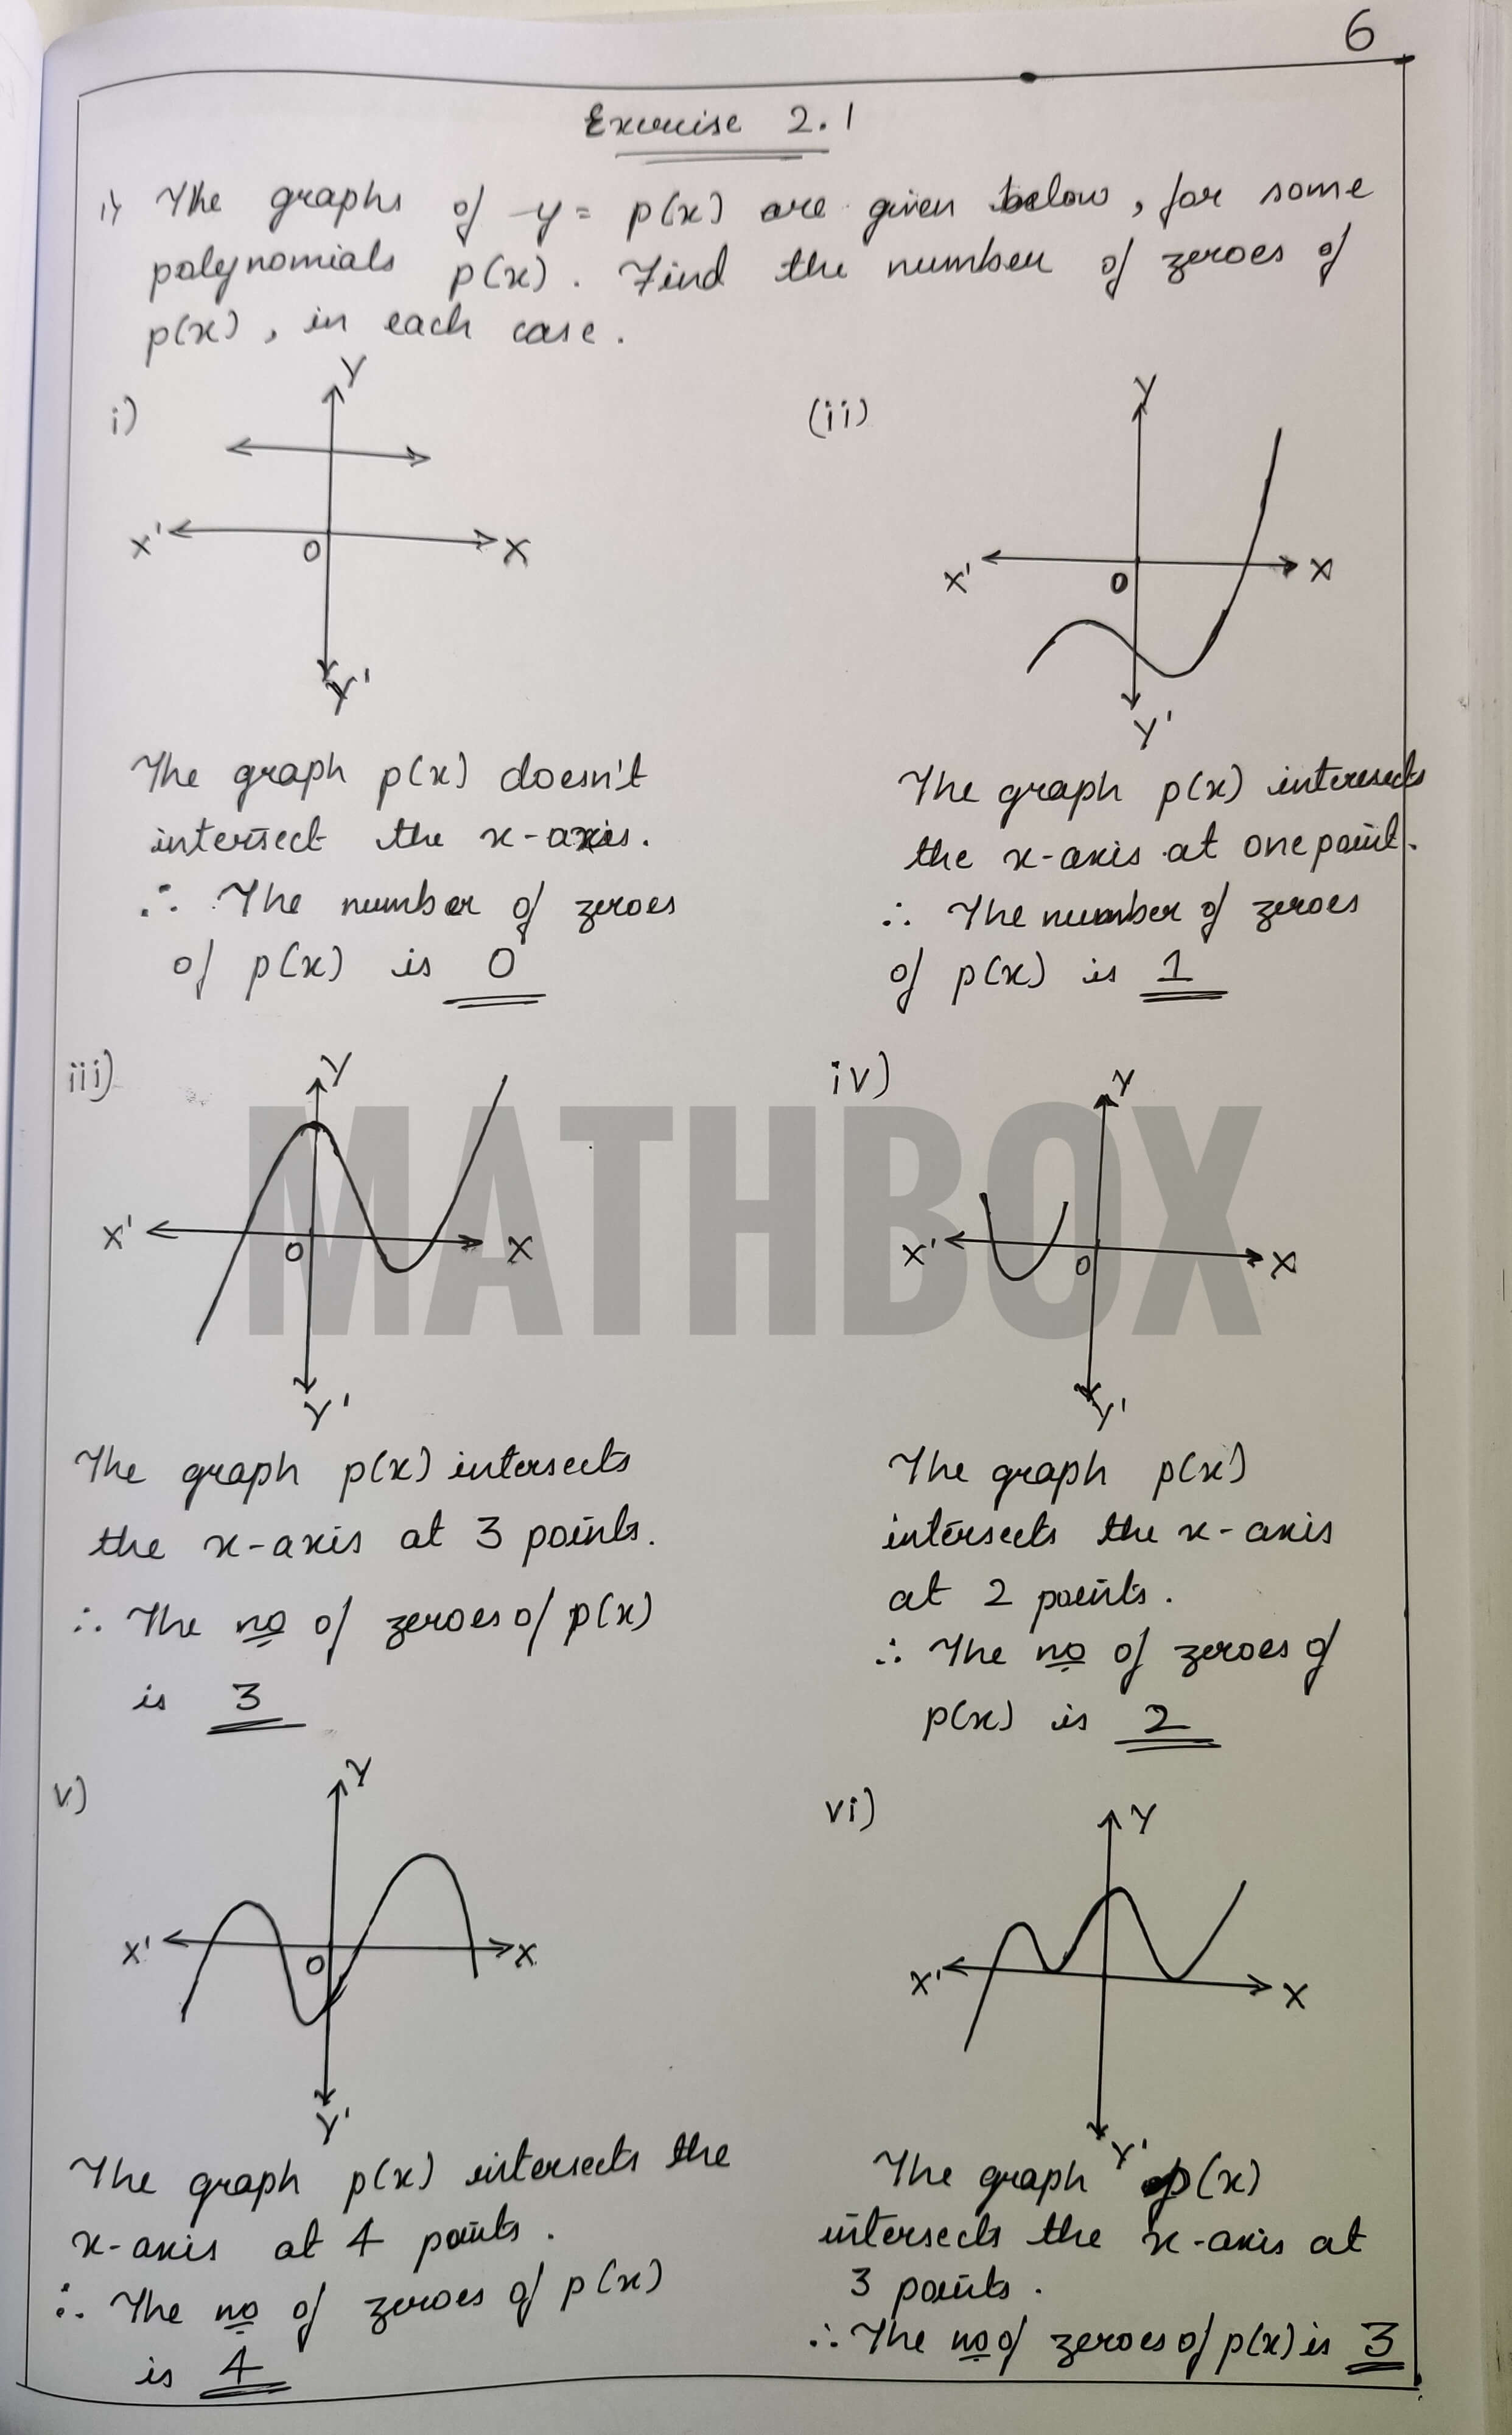 6
Exercise 2.1
1) The graphs of y = p(x) are given below, for some
polynomials p(x). Find the number of zeroes of
p(x), in each case.
i)
Y
X'
O
X
Y'
(ii)
Y
X'
O
X
Y'
The graph p(x) doesn't
intersect the x-axis.
∴ The number of zeroes
of p(x) is 0
The graph p(x) interesects
the x-axis at one point.
∴ The number of zeroes
of p(x) is 1
iii)
Y
X'
O
X
Y'
iv)
Y
X'
O
X
Y'
MATHBOX
The graph p(x) intersects
the x-axis at 3 points.
∴ The no of zeroes of p(x)
is 3
The graph p(x)
intersects the x-axis
at 2 points.
∴ The no of zeroes of
p(x) is 2
v)
Y
X'
O
X
Y'
vi)
Y
X'
X
Y'
The graph p(x) intersects the
x-axis at 4 points.
∴ The no of zeroes of p(x)
is 4
The graph p(x)
intersects the x-axis at
3 points.
∴ The no of zeroes of p(x) is 3